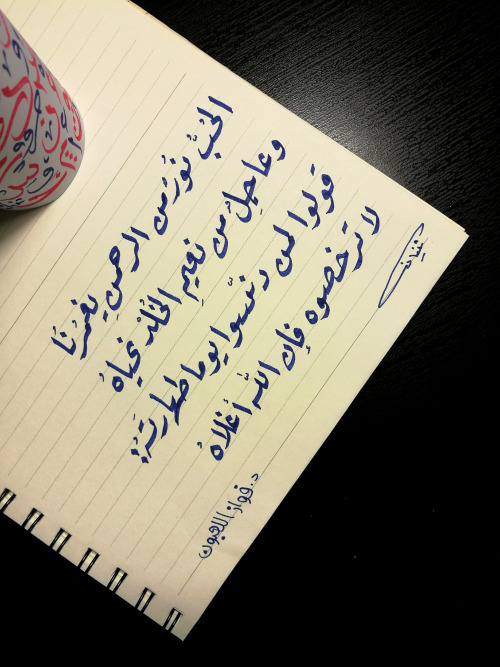 الحُبُّ نُورٌ من الرحمنِ يغمُرُنَا
وعاجِلٌ من نعيمِ الخُلدِ نحياهُ
قولوا لمن دنّسوا يوما طهارتَهُ:
لا ترخصوه فإن اللّه أغلاهُ
د. فواز اللعبون